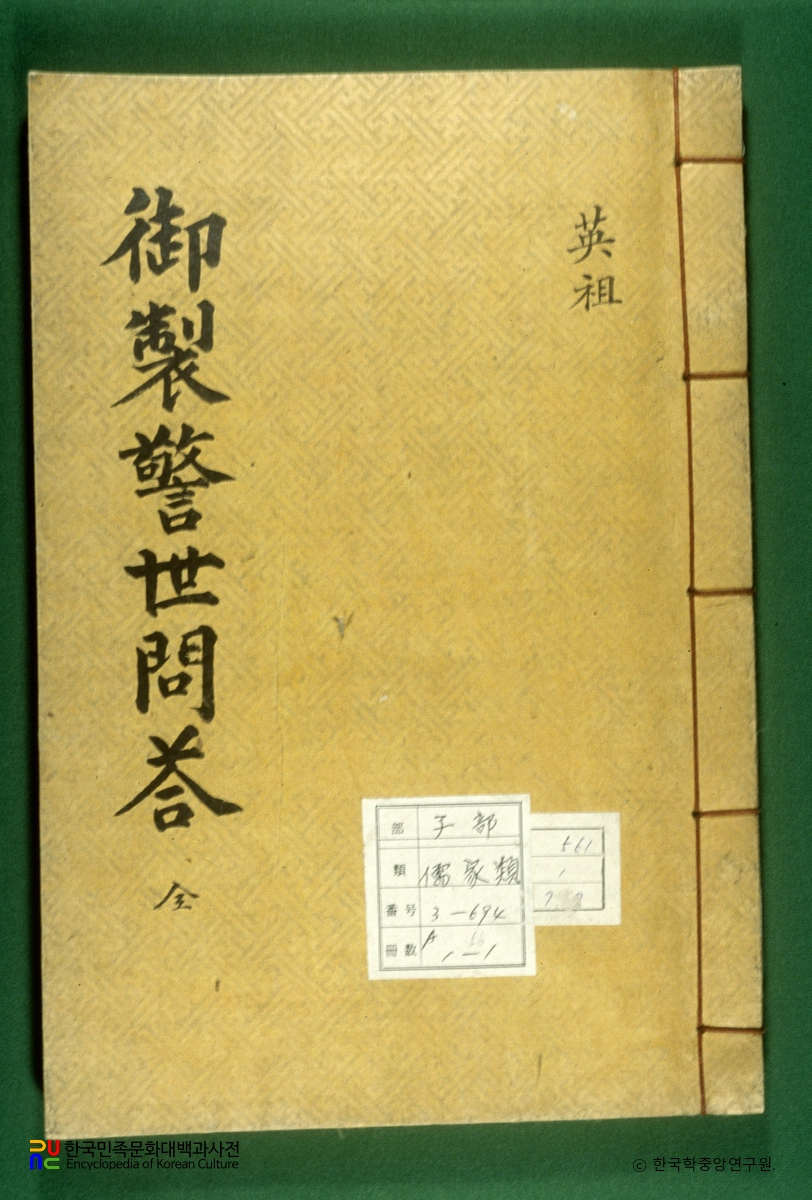 英祖
御製警世問答 全
部 子部
類 儒家類
番号 3-694
冊数 A 1-1
561
1
한국민족문화대백과사전
Encyclopedia of Korean Culture
ⓒ 한국학중앙연구원.